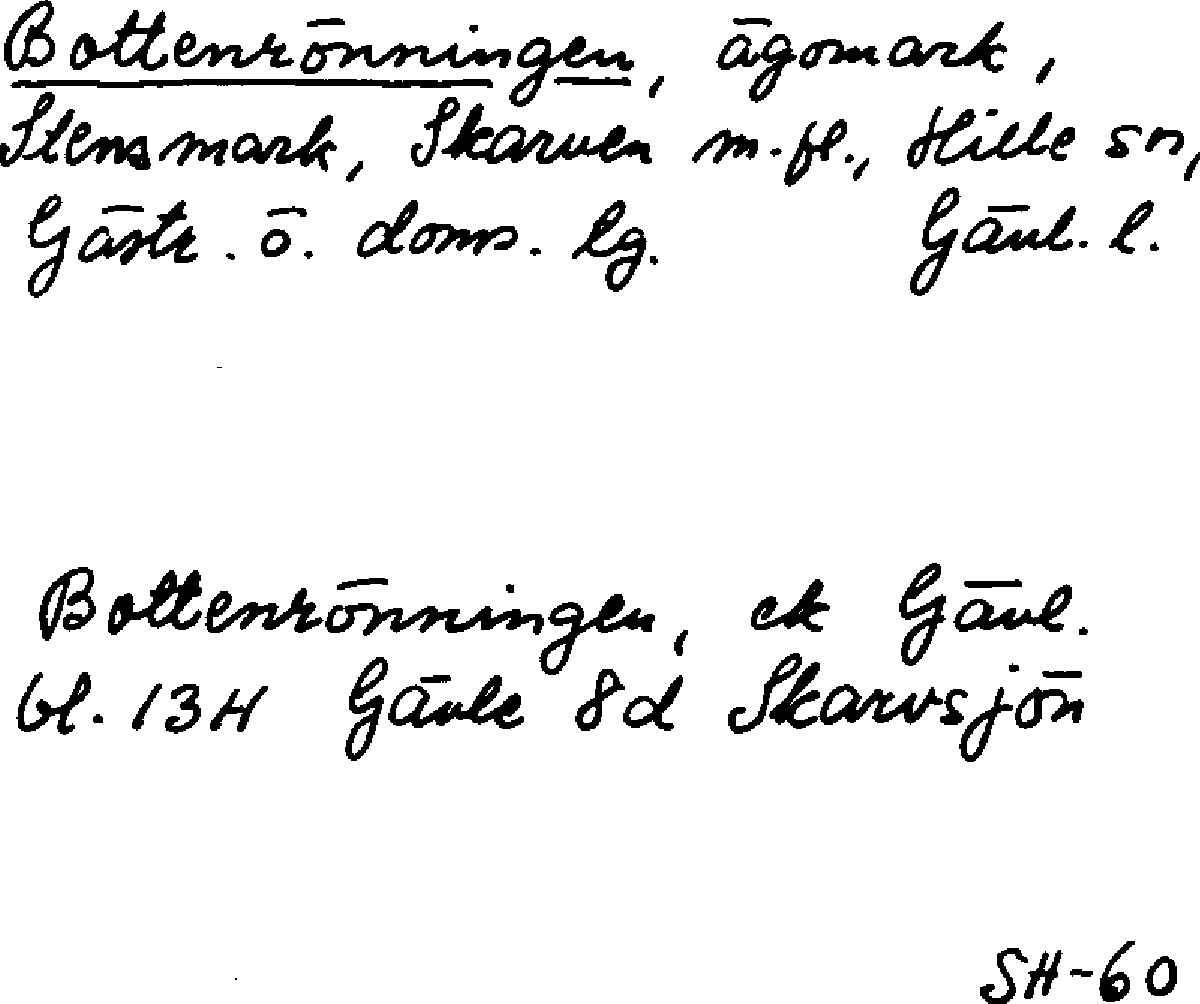 Bottenrönningen, ägomark,
Stensmark, Skarven m.fl., Hille sn,
Gästr. ö. doms. lg. Gävl. l.
Bottenrönningen, ek Gävl.
bl. 13H Gävle 8d Skarvsjön
SH-60